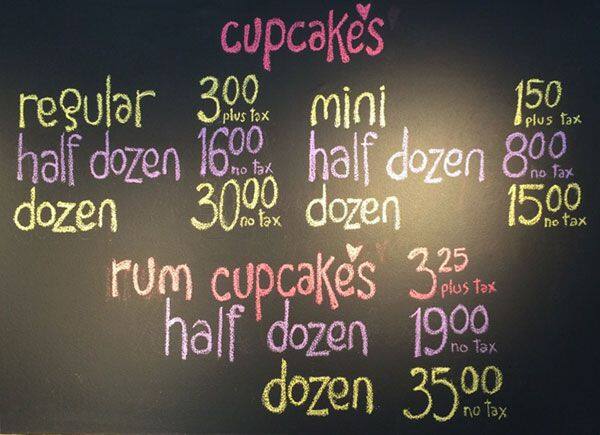 cupcakes
regular 3.00 plus tax
half dozen 16.00 no tax
dozen 30.00 no tax
mini 1.50 plus tax
half dozen 8.00 no tax
dozen 15.00 no tax
rum cupcakes 3.25 plus tax
half dozen 19.00 no tax
dozen 35.00 no tax